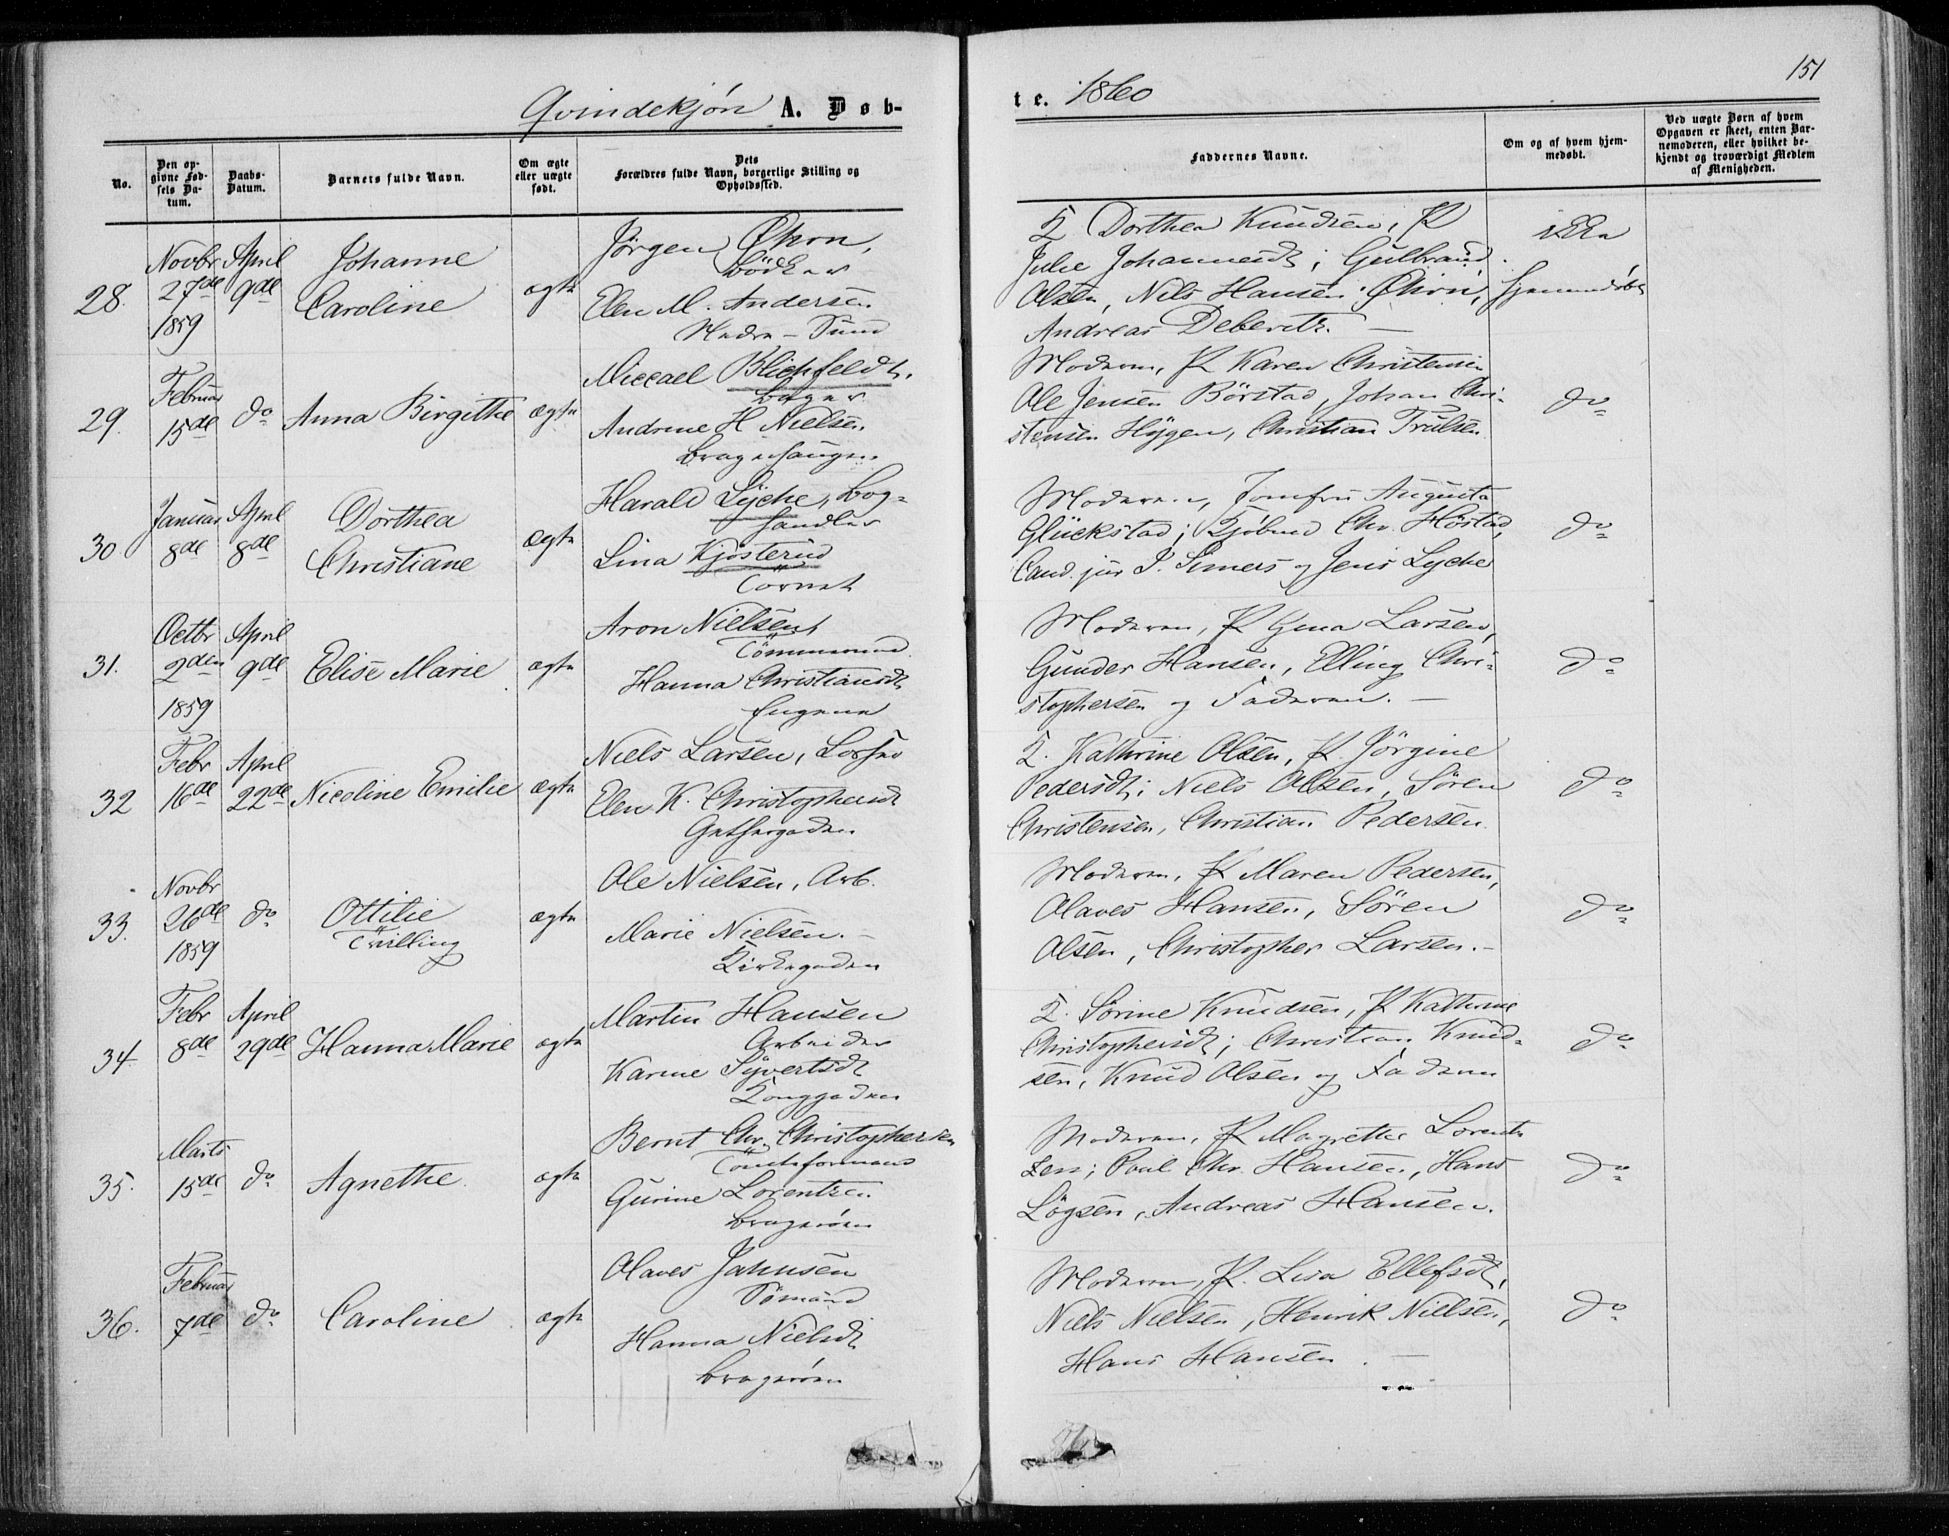 151
Qvindekjøn A. Døb-
te. 1860
No.
Den op-
givne Fød-
sels Da-
tum.
Daabs-
Datum.
Barnets fulde Navn.
Om ægte
eller uægte
født.
Dets
Forældres fulde Navn, borgerlige Stilling og
Opholdssted.
Faddernes Navne.
Om og af hvem hjem-
medøbt.
Ved uægte Børn af hvem
Opgaven er skeet, enten Bar-
nemoderen, eller hvilket be-
kjendt og troværdigt Medlem
af Menigheden.
28.
Novbr
27de
1859
April
9de
Johanne
Caroline
ægte
Jørgen Økon,
Bödker
Elen M. Andersen
Nedre-Sund
K Dorthea Knudsen, P
Julie Johannesdt; Gulbrand
Olsen, Nils Hansen Økon,
Andreas Deberitz. —
ikke
hjemmedøbt
29.
Februar
15de
do
Anna Birgithe
ægte
Miccael Blichfeldt.
Bager
Andrine H Nielsen
Bragerhaugen
Moderen, P Karen Christensen
Ole Jensen Börstad, Johan Chri-
stensen Hÿgen, Christian Trulsen
do
30
Januar
8de
April
8de
Dorthea
Christiane
ægte
Harald Lyche, Bog-
handler
Lina Kjösterud
Torvet
Moderen, Jomfru Augusta
Glückstad; Kjøbmd Chr. Höstad,
Cand. jur J. Simers og Jens Lyche
do
31.
Octbr
2den
1859
April
9de
Elise Marie
ægte
Aron Nielsen
Tömmermd
Hanna Christiansdt
Engene
Moderen, P Gina Larsen,
Gunder Hansen, Elling Chri-
stophersen og Faderen. —
do
32
Febr
16de
April
22de
Nicoline Emilie
ægte
Niels Larsen,
Elen K. Christophersdt
Gethergaden
K. Kathrine Olsen, P. Jörgine
Pedersdt; Niels Olsen, Sören
Christensen, Christian Pedersen
do
33.
Novbr
26de
1859
do
Ottilie
Tvilling
ægte
Ole Nielsen, Arb.
Marie Nielsen. —
Kirkegaden
Moderen, P Maren Pedersen,
Olaves Hansen, Sören
Olsen, Christopher Larsen. —
do
34
Febr
8de
April
29de
Hanna Marie
ægte
Martin Hansen
Arbeider
Karine Syvertsdt
Konggaden
K. Sörine Knudsen, P Kathrine
Christophersdt; Christian Knud-
sen, Knud Olsen og Faderen
do
35.
Marts
15de
do
Agnethe
ægte
Bernt Chr. Christophersen
Tomteformand
Gurine Lorentzen
Bragerøen
Moderen, P Magrethe Lorent-
zen; Poul Chr. Hansen, Hans
Lögsen, Andreas Hansen.
do
36.
Februar
7de
do
Caroline
ægte
Olaves Jahnsen
Sömand
Hanna Nielsdt
Bragerøen
Moderen, P. Lisa Ellefsdt,
Niels Nielsen, Henrik Nielsen,
Hans Hansen. —
do